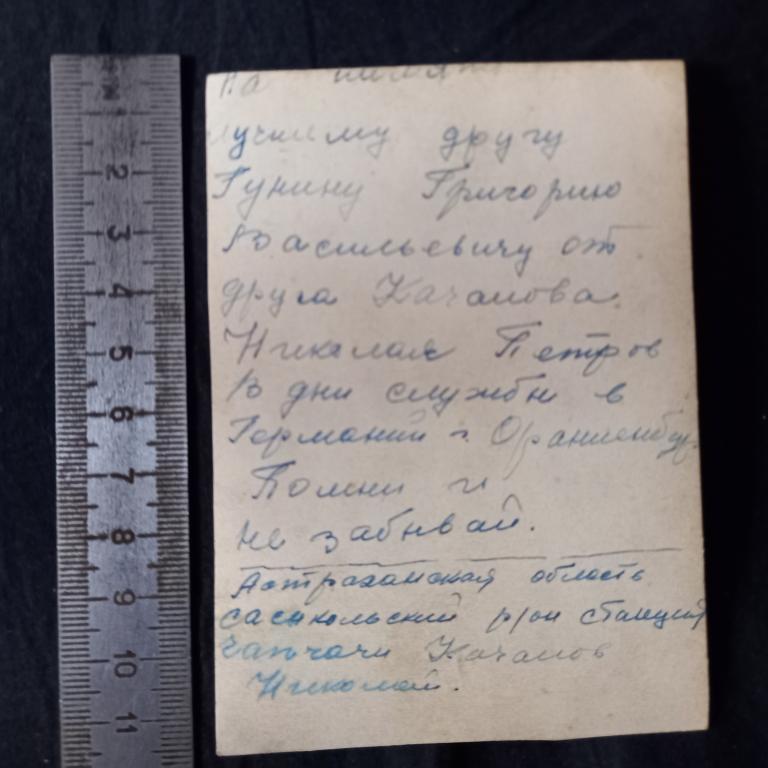 На памят
лучшему другу
Гунину Григорию
Васильевичу от
друга Качалова.
Николая Петров
В дни службы в
Германии г. Ораниенбург.
Помни и
не забывай.
Астраханская область
сасыкольский р/он станция
Чапчачи Качалов
Николай.
1
2
3
4
5
6
7
8
9
10
11